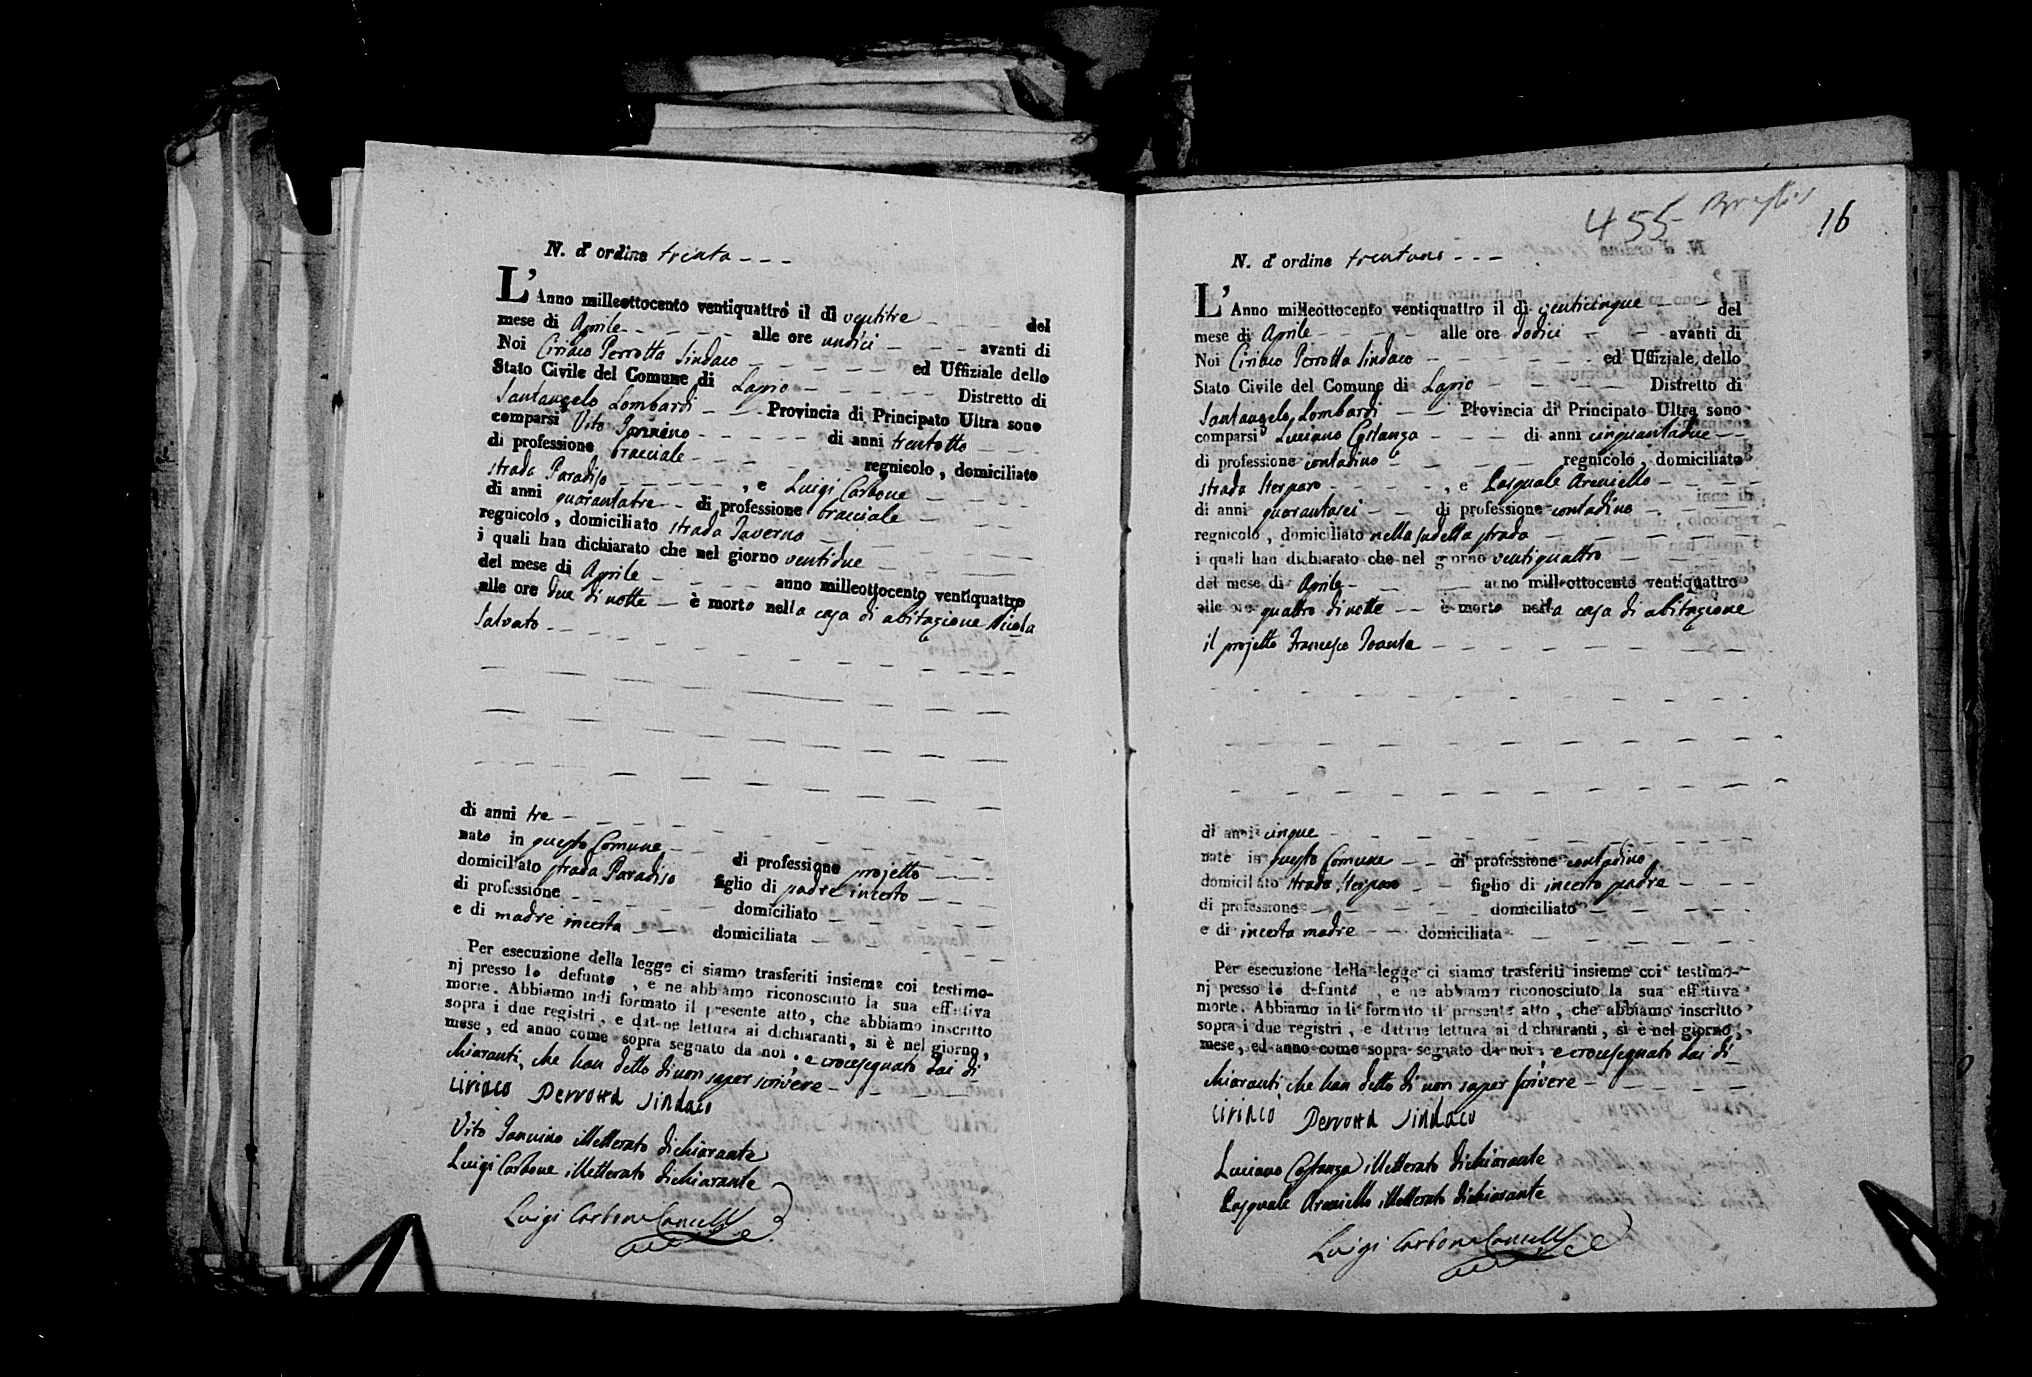 N. d'ordine trenta
L'Anno milleottocento ventiquattro il dì ventitre del
mese di Aprile alle ore undici avanti di
Noi Ciriaco Perrotta Sindaco ed Uffiziale dello
Stato Civile del Comune di Lapio Distretto di
Santangelo Lombardi Provincia di Principato Ultra sono
comparsi Vito Iannino di anni trentotto
di professione bracciale regnicolo, domiciliato
strada Paradiso, e Luigi Carbone
di anni quarantatre di professione bracciale
regnicolo, domiciliato strada Taverno
i quali han dichiarato che nel giorno ventidue
del mese di Aprile anno milleottocento ventiquattro
alle ore due di notte è morto nella casa di abitazione Nicola
Salvato
di anni tre
nato in questo Comune di professione projetto
domiciliato strada Paradiso figlio di padre incerto
di professione domiciliato
e di madre incerta domiciliata
Per esecuzione della legge ci siamo trasferiti insieme coi testimo-
nj presso lo defunto, e ne abbiamo riconosciuto la sua effettiva
morte. Abbiamo indi formato il presente atto, che abbiamo inscritto
sopra i due registri, e datone lettura ai dichiaranti, si è nel giorno,
mese, ed anno come sopra segnato da noi, e crocesegnato dai di
chiaranti, che han detto di non saper scrivere
Ciriaco Perrotta Sindaco
Vito Iannino illetterato dichiarante
Luigi Carbone illetterato dichiarante
Luigi Carbone Cancell
455
16
N. d'ordine trentuno
L'Anno milleottocento ventiquattro il dì venticinque del
mese di Aprile alle ore dodici avanti di
Noi Ciriaco Perrotta Sindaco ed Uffiziale dello
Stato Civile del Comune di Lapio Distretto di
Santangelo Lombardi Provincia di Principato Ultra sono
comparsi Luciano Costanza di anni cinquantadue
di professione contadino regnicolo, domiciliato
strada Sterparo, e Pasquale Areniello
di anni quarantasei di professione contadino
regnicolo, domiciliato nella sudetta strada
i quali han dichiarato che nel giorno ventiquattro
del mese di Aprile anno milleottocento ventiquattro
alle ore quattro di notte è morto nella casa di abitazione
il projetto Francesco
di anni cinque
nato in questo Comune di professione contadino
domiciliato strada Sterparo figlio di incerto padre
di professione domiciliato
e di incerta madre domiciliata
Per esecuzione della legge ci siamo trasferiti insieme coi testimo-
nj presso lo defunto, e ne abbiamo riconosciuto la sua effettiva
morte. Abbiamo indi formato il presente atto, che abbiamo inscritto
sopra i due registri, e datone lettura ai dichiaranti, si è nel giorno,
mese, ed anno come sopra segnato da noi, e crocesegnato dai di
chiaranti che han detto di non saper scrivere
Ciriaco Perrotta Sindaco
Luciano Costanza illetterato dichiarante
Pasquale Areniello illetterato dichiarante
Luigi Carbone Cancell